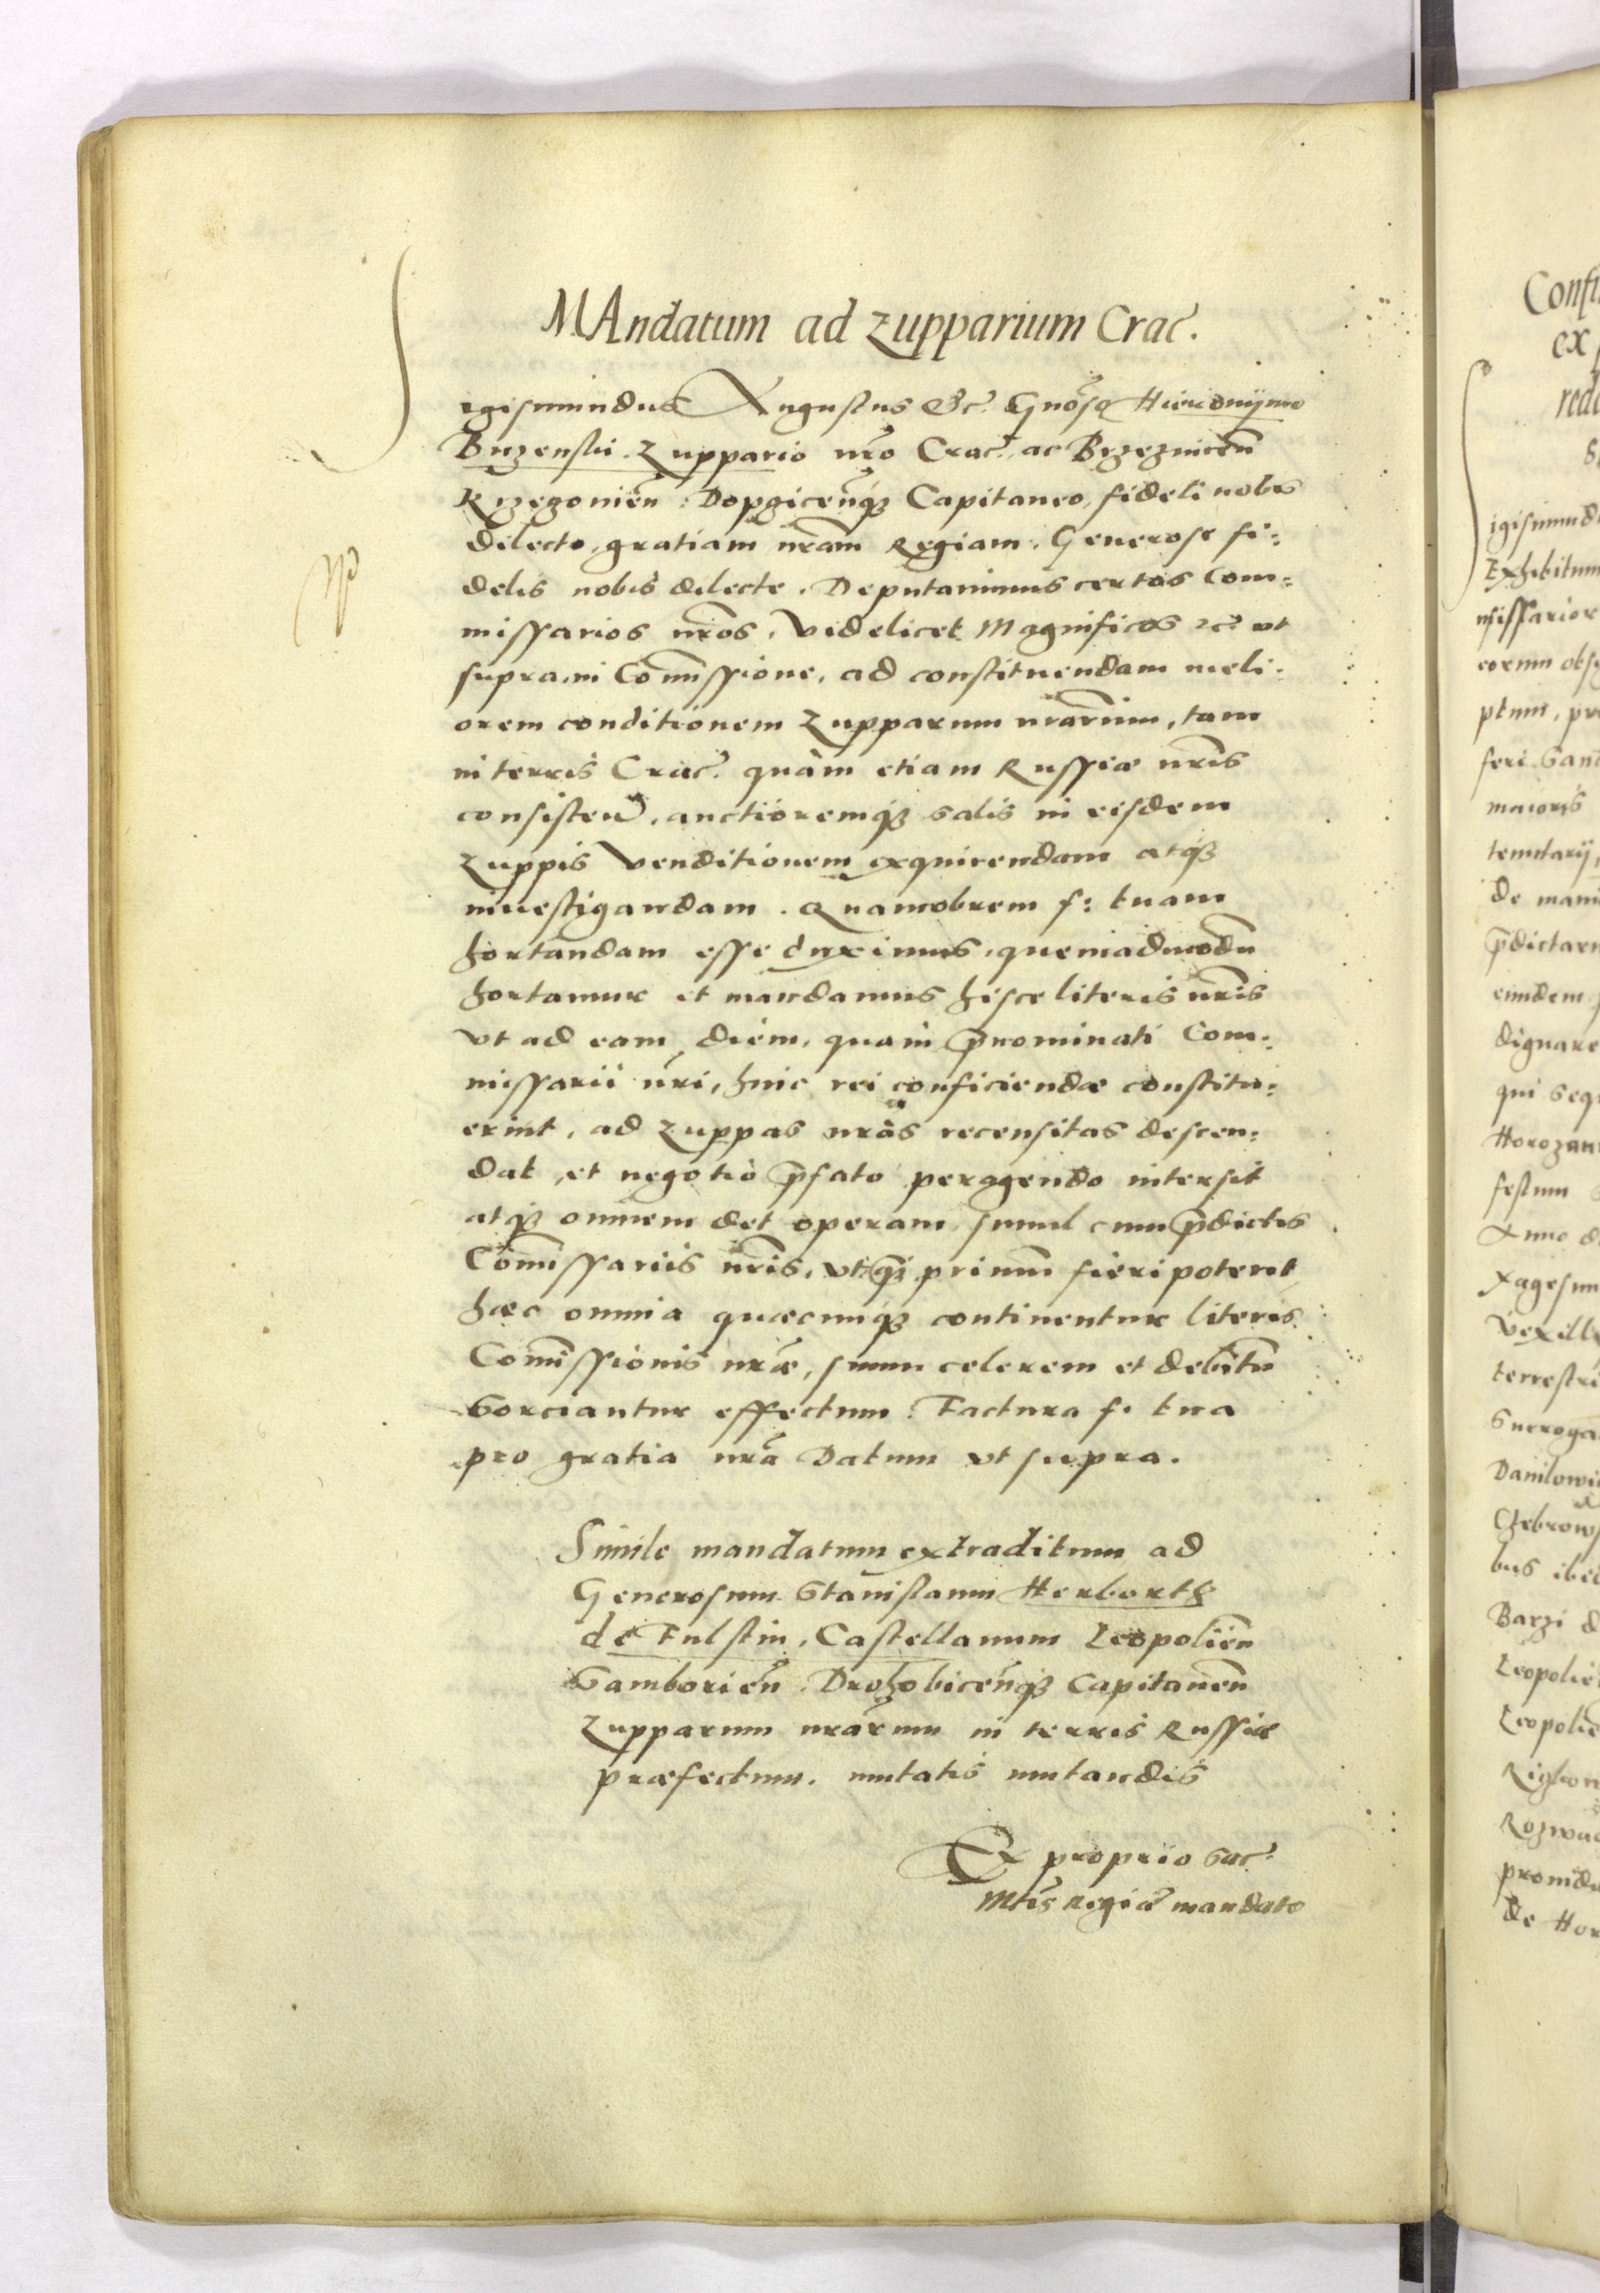 MAndatum ad zupparium Crac̃.
Sigismundus Augustus &c̃. Gnõso Hieronÿmo
Buzenski Zuppario nr̃o Crac̃. ac Brzeznicen̄
Krzegonien̄: Dopgicen̄q₃ Capitaneo, fideli nobis
dilecto, gratiam nr̃am Regiam. Generose fi:
delis nobis dilecte. Deputauimus certos Com:
missarios nr̃os, Videlicet Magnificos &c̃ ut
supra in Com̄issione, ad constituendam meli:
orem conditionem Zupparum nrãrum, tam
in terris Crac̃. quàm etiam Russiæ nr̃is
consisten̄, auctioremq₃ salis in eisdem
Zuppis Venditionem exquirendam atq₃
inuestigandam. Quamobrem f: tuam
hortandam esse duximus, quemadmodū
hortamur et mandamus hisce literis nr̃is
Vt ad eam diem, quam p̄nominati Com:
missarii nr̃i, huic rei conficiendæ constitu:
erint, ad Zuppas nrãs recensitas descen:
dat, et negotio p̄fato peragendo intersit
atq₃ omnem det operam, simul cum p̄dictis
Com̄issariis nr̃is, Vt q̃ primum fieri poterit
hæc omnia quæcunq₃ continentur literis
Com̄issionis nr̃æ, suum celerem et debitū
sorciantur effectum. Factura f. tua
pro gratia nr̃a Datum Vt supra.
Simile mandatum extraditum ad
Generosum Stanislaum Herborth
de Fulstin, Castellanum Leopolien̄
Samborien̄: Drohobicen̄q₃ Capitaneū
Zupparum nrãrum in terris Russiæ
præfectum. mutatis mutandis
Ex proprio sac̃.
Mt̃is Regiæ mandato
Confi
ex
redd
S
Sigismundu
Exhibitum
missarior
eorum obse
ptum, pr
feri Sanc
maioris
tentarij,
de man
p̄dictar
eiusdem
dignare
qui sequ
Horozan
festum
Anno d
xagesim
Vexill
terrestri
Surroga
Danilowi
Czebrows
bus ibid
Barzi d
Leopolie
Leopolie
Rozwa
de Hor